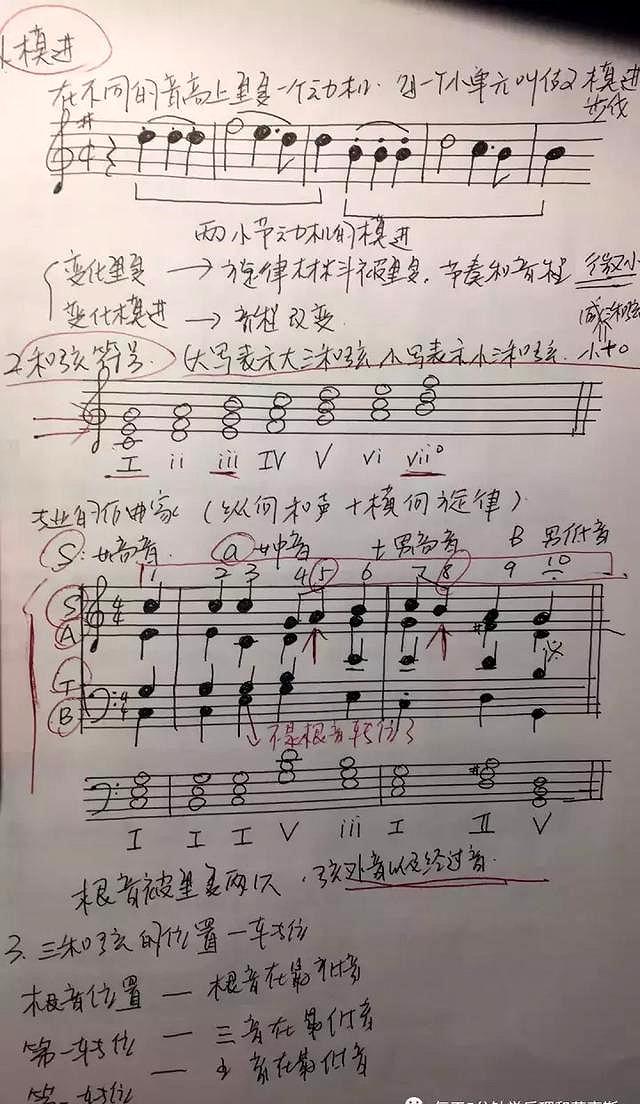 1. 模进
在不同的音高上重复一个动机. 每一个小单元叫做 模进
步伐
两小节动机的模进
变化重复 → 旋律材料被重复. 节奏和音程 微小
变化模进 → 音程改变.
减三和弦
2. 和弦符号. (大写表示大三和弦, 小写表示小三和弦. 小+o
I ii iii IV V vi vii°
专业的作曲家 (纵向和声 + 横向旋律).
S: 女高音. a 女中音 t 男高音 B 男低音
1 2 3 4 5 6 7 8 9 10
S
A
T
B
不是根音 转位了
I I I V iii I II V
根音被重复两次. 弦外音以及经过音.
3. 三和弦的位置—转位
根音位置 — 根音在最低音
第一转位 — 三音在最低音
— 五音在最低音